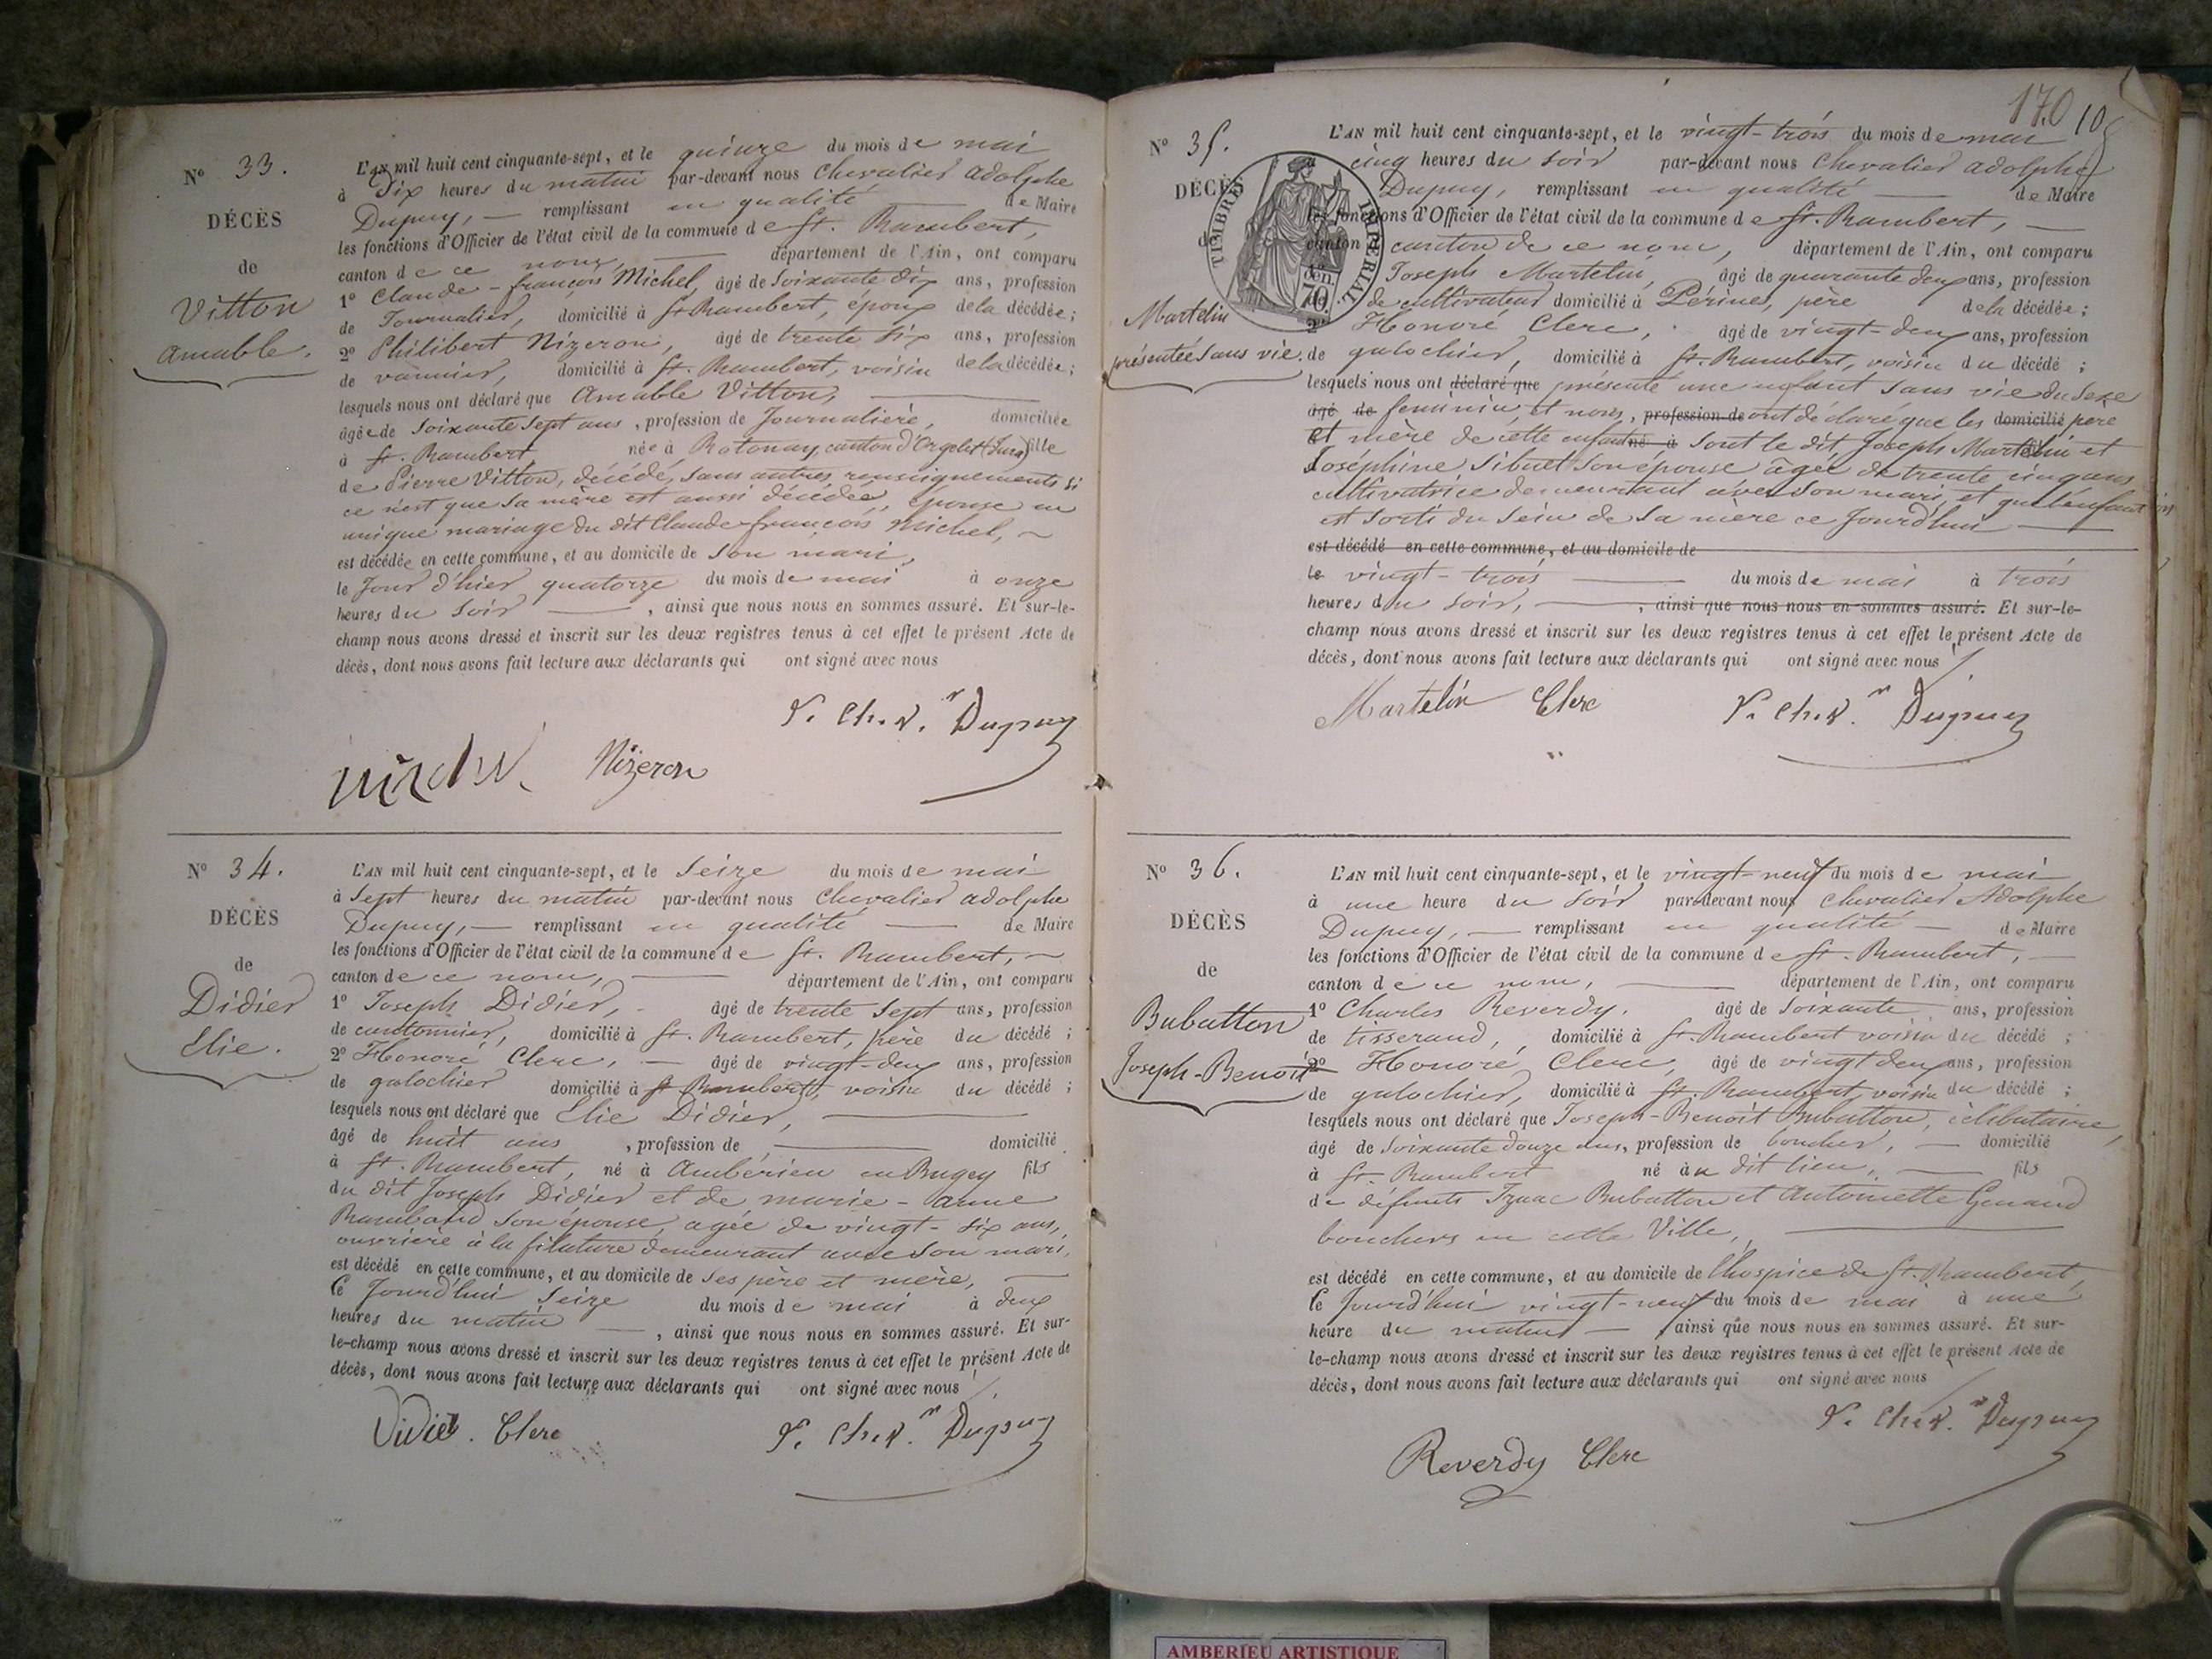 No 33.
DÉCÈS
de
Vitton
Amable.
L'AN mil huit cent cinquante-sept, et le quinze du mois de mai
à Dix heures du matin par-devant nous Chevalier Adolphe
Dupuy, — remplissant en qualité — de Maire
les fonctions d'Officier de l'état civil de la commune de St. Rambert,
canton de ce nom, — département de l'Ain, ont comparu
1o Claude-françois Michel, âgé de Soixante dix ans, profession
de Journalier, domicilié à St Rambert, époux de la décédée;
2o Philibert Nizeron, âgé de trente six ans, profession
de vannier, domicilié à St. Rambert, voisin de la décédée;
lesquels nous ont déclaré que Amable Vitton, —
âgée de Soixante Sept ans, profession de Journalière, domiciliée
à St. Rambert, née à Rotonay, canton d'Orgelet (Jura) fille
de Pierre Vitton, décédé, sans autres renseignements si
ce n'est que sa mère est aussi décédée, épouse en
unique mariage du dit Claude-françois Michel, ~
est décédée en cette commune, et au domicile de son mari,
le Jour d'hier quatorze du mois de mai à onze
heures du Soir — , ainsi que nous nous en sommes assuré. Et sur-le-
champ nous avons dressé et inscrit sur les deux registres tenus à cet effet le présent Acte de
décès, dont nous avons fait lecture aux déclarants qui ont signé avec nous
Dupuy
Nizeron
No 34.
DÉCÈS
de
Didier
Elie.
L'AN mil huit cent cinquante-sept, et le Seize du mois de mai
à Sept heures du matin par-devant nous Chevalier Adolphe
Dupuy, — remplissant en qualité — de Maire
les fonctions d'Officier de l'état civil de la commune de St. Rambert, ~
canton de ce nom, — département de l'Ain, ont comparu
1o Joseph Didier, âgé de trente Sept ans, profession
de cantonnier, domicilié à St. Rambert, père du décédé ;
2o Honoré Clerc, — âgé de vingt-deux ans, profession
de galochier domicilié à St Rambert, voisin du décédé ;
lesquels nous ont déclaré que Elie Didier, —
âgé de huit ans , profession de — domicilié
à St. Rambert, né à Ambérieu en Bugey fils
du dit Joseph Didier et de marie-anne
Rambaud son épouse, agée de vingt-six ans,
ouvrière à la filature demeurant avec son mari,
est décédé en cette commune, et au domicile de ses père et mère, —
le Jourd'hui Seize du mois de mai à deux
heures du matin — , ainsi que nous nous en sommes assuré. Et sur-
le-champ nous avons dressé et inscrit sur les deux registres tenus à cet effet le présent Acte de
décès, dont nous avons fait lecture aux déclarants qui ont signé avec nous
Didier. Clerc Dupuy
170
No 35.
DÉCÈS
de
Martelin
présentée sans vie.
TIMBRE IMPERIAL
70
L'AN mil huit cent cinquante-sept, et le vingt-trois du mois de mai
cinq heures du Soir par-devant nous Chevalier Adolphe
Dupuy, remplissant en qualité — de Maire
les fonctions d'Officier de l'état civil de la commune de St. Rambert, —
canton canton de ce nom, département de l'Ain, ont comparu
Joseph Martelin, âgé de quarante deux ans, profession
de cultivateur domicilié à Pérines, père de la décédée;
2o Honoré Clerc, âgé de vingt-deux ans, profession
de galochier, domicilié à St. Rambert, voisin du décédé ;
lesquels nous ont déclaré que présenté une enfant sans vie du Sexe
âgé de feminin, et nous, profession de ont déclaré que les domicilié père
et mère de cette enfant né à sont le dit Joseph Martelin et
Joséphine Sibuet son épouse agée de trente cinq ans
cultivatrice demeurant avec son mari, et que l'enfant
est sorti du sein de sa mère ce Jourd'hui —
est décédé en cette commune, et au domicile de
le vingt-trois — du mois de mai à trois
heures du Soir, — , ainsi que nous nous en sommes assuré. Et sur-le-
champ nous avons dressé et inscrit sur les deux registres tenus à cet effet le présent Acte de
décès, dont nous avons fait lecture aux déclarants qui ont signé avec nous
Martelin Clerc Dupuy
No 36.
DÉCÈS
de
Bubatton
Joseph-Benoît
L'AN mil huit cent cinquante-sept, et le vingt-neuf du mois de mai
à une heure du Soir par-devant nous Chevalier Adolphe
Dupuy, — remplissant en qualité — de Maire
les fonctions d'Officier de l'état civil de la commune de St. Rambert, —
canton de ce nom, — département de l'Ain, ont comparu
1o Charles Reverdy, âgé de Soixante ans, profession
de tisserand, domicilié à St. Rambert voisin du décédé ;
2o Honoré Clerc, âgé de vingt deux ans, profession
de galochier, domicilié à St. Rambert, voisin du décédé ;
lesquels nous ont déclaré que Joseph-Benoît Bubatton, célibataire,
âgé de Soixante douze ans, profession de boucher, — domicilié
à St. Rambert né au dit lieu, — fils
de défunts Izaac Bubatton et Antoinette Genaud
bouchers en cette Ville, —
est décédé en cette commune, et au domicile de l'hospice de St. Rambert,
le Jourd'hui vingt-neuf du mois de mai à une
heure du matin — , ainsi que nous nous en sommes assuré. Et sur-
le-champ nous avons dressé et inscrit sur les deux registres tenus à cet effet le présent Acte de
décès, dont nous avons fait lecture aux déclarants qui ont signé avec nous
Dupuy
Reverdy Clerc
AMBERIEU ARTISTIQUE